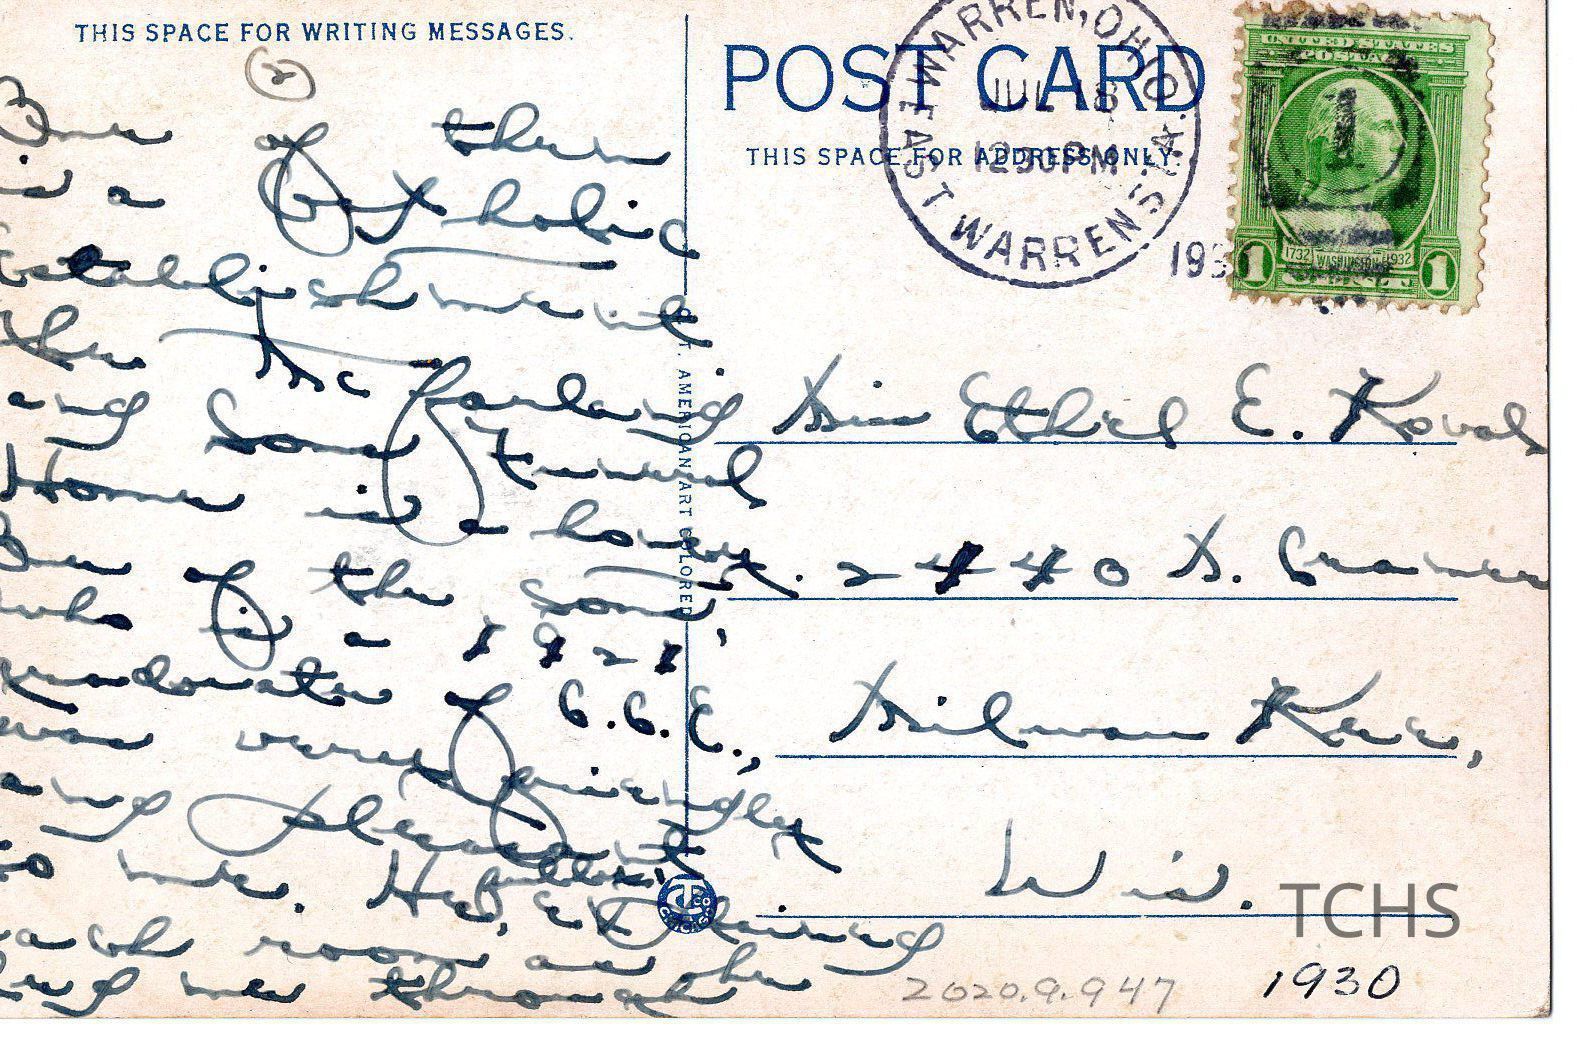 THIS SPACE FOR WRITING MESSAGES.
(2)
One of them
is a Catholic
establishment.
The McFarland
and Sons Funeral
Home is a honey.
One of the sons,
who is a 1921
graduate of C.C.E.,
was very friendly
and pleasant
to me. He
wash room as he
me through
C.T. AMERICAN ART COLORED
POST CARD
THIS SPACE FOR ADDRESS ONLY.
WARREN, OHIO
JUL 18
1230 PM
EAST WARREN STA.
193
UNITED STATES
POSTAGE
1 1732 WASHINGTON 1932 1
Miss Ethel E. Koval
2440 S.
Milwaukee,
Wis.
TCHS
1930
2020.9.947